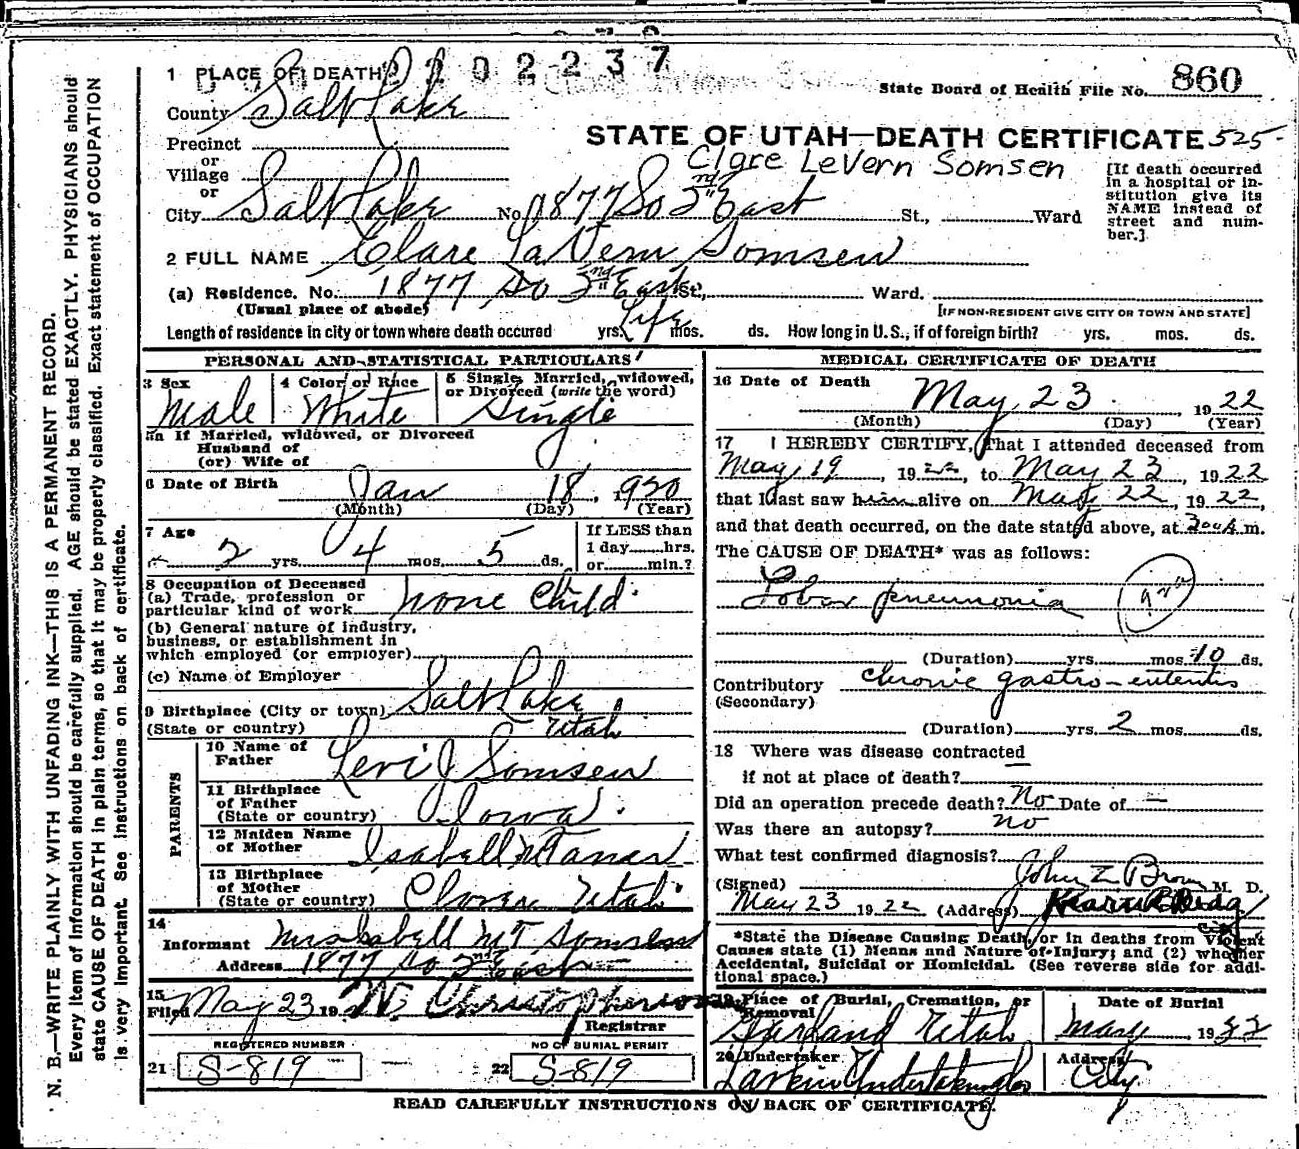 202237
1 PLACE OF DEATH
State Board of Health File No. 860
County Salt Lake
STATE OF UTAH—DEATH CERTIFICATE 525
Precinct
or
Clare LeVern Somsen
Village
or
City Salt Lake No. 1877 So 2nd East St., Ward
[If death occurred
in a hospital or in-
stitution give its
NAME instead of
street and num-
ber.]
2 FULL NAME Clare LaVern Somsen
(a) Residence. No. 1877 So 2nd East St., Ward.
(Usual place of abode)
[IF NON-RESIDENT GIVE CITY OR TOWN AND STATE]
Length of residence in city or town where death occured yrs. Life mos. ds. How long in U.S., if of foreign birth? yrs. mos. ds.
PERSONAL AND STATISTICAL PARTICULARS
3 Sex
Male
4 Color or Race
White
5 Single, Married, widowed,
or Divorced (write the word)
Single
5a If Married, widowed, or Divorced
Husband of
(or) Wife of
6 Date of Birth Jan 18, 1920
(Month) (Day) (Year)
7 Age
2 yrs. 4 mos. 5 ds.
If LESS than
1 day......hrs.
or......min.?
8 Occupation of Deceased
(a) Trade, profession or
particular kind of work none Child
(b) General nature of industry,
business, or establishment in
which employed (or employer)
(c) Name of Employer
9 Birthplace (City or town) Salt Lake
(State or country) Utah
PARENTS
10 Name of
Father Levi J Somsen
11 Birthplace
of Father
(State or country) Iowa
12 Maiden Name
of Mother Isabell
13 Birthplace
of Mother
(State or country) Clover Utah
14
Informant Mrs Isabell McT Somsen
Address 1877 So 2nd East
15
Filed May 23 19 22 W. Christopherson
Registrar
REGISTERED NUMBER
21 S-819
NO OF BURIAL PERMIT
22 S-819
MEDICAL CERTIFICATE OF DEATH
16 Date of Death
May 23, 1922
(Month) (Day) (Year)
17 I HEREBY CERTIFY, That I attended deceased from
May 19, 1922, to May 23, 1922
that I last saw him alive on May 22, 1922,
and that death occurred, on the date stated above, at 3 A. m.
The CAUSE OF DEATH* was as follows:
Lobar pneumonia
(Duration) yrs. mos. 10 ds.
Contributory Chronic gastro-enteritis
(Secondary)
(Duration) yrs. 2 mos. ds.
18 Where was disease contracted
if not at place of death?
Did an operation precede death? No Date of —
Was there an autopsy? no
What test confirmed diagnosis?
(Signed) John Z Brown M. D.
May 23 1922 (Address) Kearns Bldg
City
*State the Disease Causing Death, or in deaths from Violent
Causes state (1) Means and Nature of Injury; and (2) whether
Accidental, Suicidal or Homicidal. (See reverse side for addi-
tional space.)
19 Place of Burial, Cremation, or
Removal
Garland Utah
Date of Burial
May 1922
20 Undertaker
Larkin Undertaking Co
Address
City
READ CAREFULLY INSTRUCTIONS ON BACK OF CERTIFICATE.
N. B.—WRITE PLAINLY WITH UNFADING INK—THIS IS A PERMANENT RECORD.
Every item of information should be carefully supplied. AGE should be stated EXACTLY. PHYSICIANS should
state CAUSE OF DEATH in plain terms, so that it may be properly classified. Exact statement of OCCUPATION
is very important. See instructions on back of certificate.